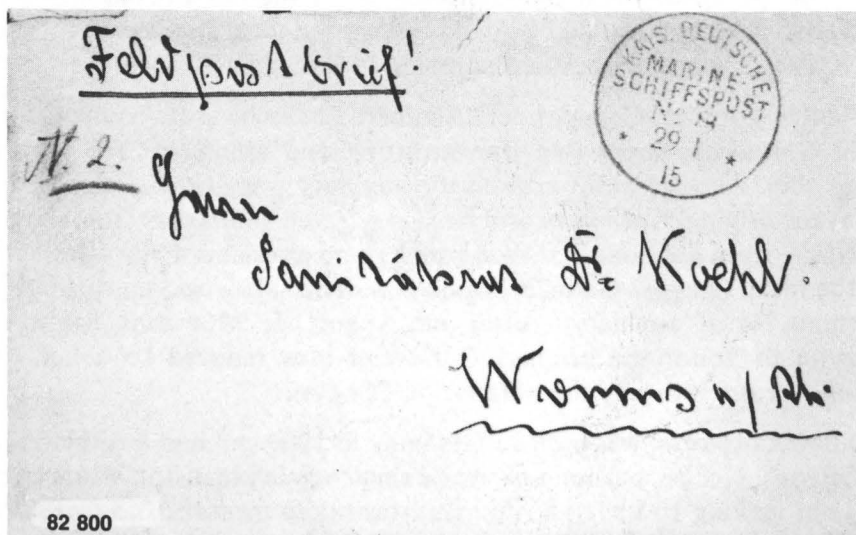 Feldpostbrief!
KAIS. DEUTSCHE
MARINE-
SCHIFFSPOST
No
* 29 1 *
15
N 2.
Herrn
Sanitätsrat Dr. Koehl.
Worms a/Rh.
82 800